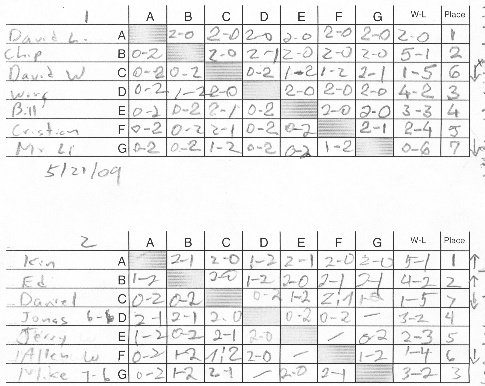 1 A B C D E F G W-L Place
David L. A 2-0 2-0 2-0 2-0 2-0 2-0 2-0 1
Chip B 0-2 2-0 2-1 2-0 2-0 2-0 5-1 2
David W C 0-2 0-2 0-2 1-2 1-2 2-1 1-5 6
D 0-2 1-2 2-0 2-0 2-0 2-0 4-2 3
Bill E 0-2 0-2 2-1 0-2 2-0 2-0 3-3 4
Cristian F 0-2 0-2 2-1 0-2 0-2 2-1 2-4 5
Mr Li G 0-2 0-2 1-2 0-2 0-2 1-2 0-6 7
5/21/09
2 A B C D E F G W-L Place
Kin A 2-1 2-0 1-2 2-1 2-0 2-0 5-1 1
Ed B 1-2 2-0 1-2 2-0 2-1 2-1 4-2 2
Daniel C 0-2 0-2 0-2 1-2 2,1 1-5 7
Jonas 6-6 D 2-1 2-1 2-0 0-2 0-2 — 3-2 4
Jerry E 1-2 0-2 2-1 2-0 — 0-2 2-3 5
Allen W F 0-2 1-2 1,2 2-0 — 1-2 1-4 6
Mike 7-6 G 0-2 1-2 2-1 — 2-0 2-1 3-2 3